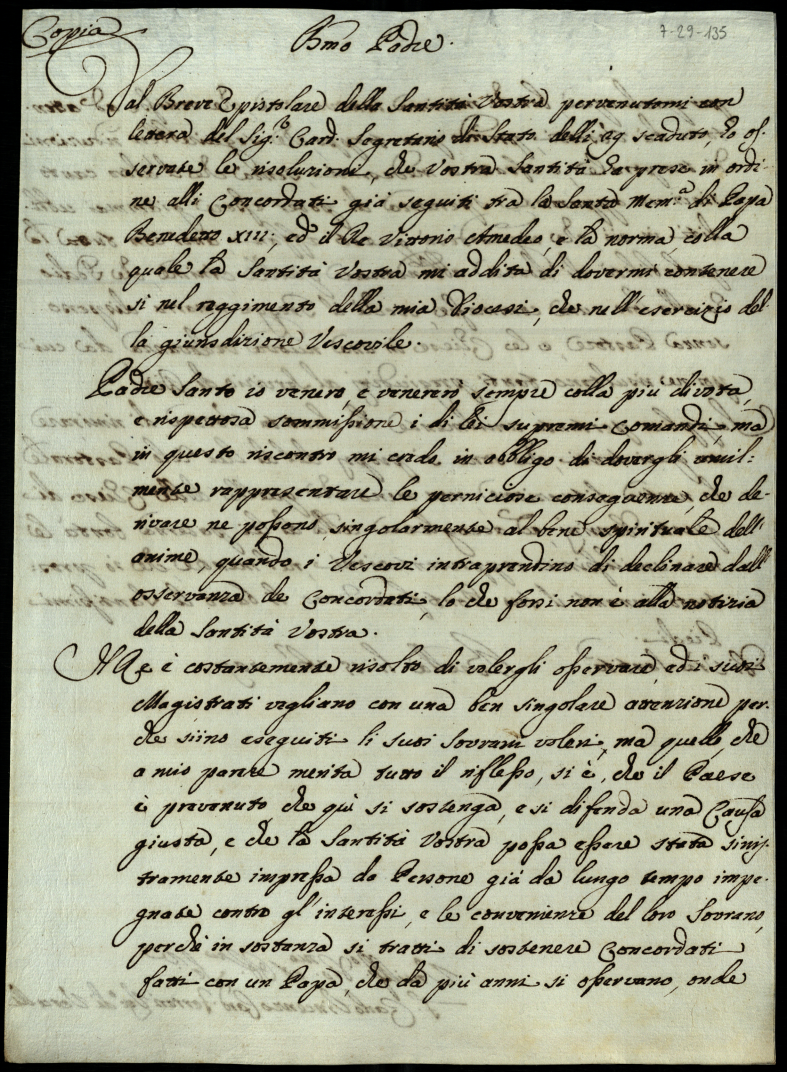 Copia
7-29-135
Bmo Padre.
Dal Breve Epistolare della Santità Vostra pervenutomi con
lettera del Sig.r Card: Segretario di Stato delli 29 scaduto, ho os-
servate le risoluzioni, che Vostra Santità ha prese in ordi-
ne alli Concordati già seguiti trà la Santa Mem.a di Papa
Benedetto XIII; ed il Re Vittorio Amedeo, e la norma colla
quale la Santità Vostra mi addita di dovermi contenere
si nel reggimento della mia Diocesi, che nell'esercizio del-
la giurisdizione Vescovile.
Padre Santo io venero, e venererò sempre colla più divota,
e rispettosa sommissione i di Lei supremi Comandi, mà
in questo riscontro mi credo in obbligo di dovergli umil:
mente rappresentare le perniciose conseguenze, che de-
rivare ne possono, singolarmente al bene spirituale dell'
anime, quando i Vescovi intraprendino di declinare dall'
osservanza de Concordati, lo che forsi non è alla notizia
della Santità Vostra.
Il Re è costantemente risolto di volergli osservare, ed i suoi
Magistrati vegliano con una ben singolare attenzione per-
che siino eseguiti li suoi Sovrani voleri, ma quello, che
a mio parere merita tutto il riflesso, si è, che il Paese
è prevenuto che quì si sostenga, e si difenda una Causa
giusta, e che la Santità Vostra possa essere stata sinis-
tramente impressa da Persone già da lungo tempo impe-
gnate contro gl'interessi, e le convenienze del loro Sovrano,
perchè in sostanza si tratti di sostenere Concordati
fatti con un Papa, che da più anni si osservano, onde